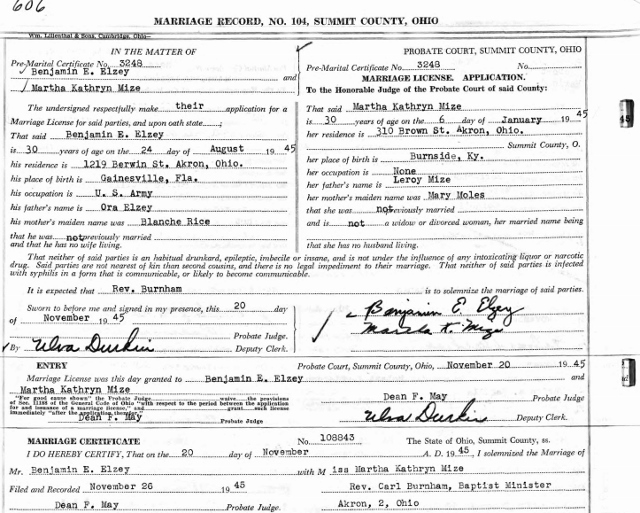 606
MARRIAGE RECORD, NO. 104, SUMMIT COUNTY, OHIO
Wm. Lilienthal & Sons, Cambridge, Ohio
IN THE MATTER OF
Pre-Marital Certificate No. 3248
Benjamin E. Elzey
and
Martha Kathryn Mize
The undersigned respectfully make their application for a
Marriage License for said parties, and upon oath state:
That said Benjamin E. Elzey
is 30 years of age on the 24 day of August 1945
his residence is 1219 Berwin St. Akron, Ohio.
his place of birth is Gainesville, Fla.
his occupation is U. S. Army
his father's name is Ora Elzey
his mother's maiden name was Blanche Rice
that he was not previously married
and that he has no wife living.
PROBATE COURT, SUMMIT COUNTY, OHIO
Pre-Marital Certificate No. 3248 No.
MARRIAGE LICENSE. APPLICATION.
To the Honorable Judge of the Probate Court of said County:
That said Martha Kathryn Mize
is 30 years of age on the 6 day of January 1945
her residence is 310 Brown St. Akron, Ohio.
Summit County, O.
her place of birth is Burnside, Ky.
her occupation is None
her father's name is Leroy Mize
her mother's maiden name was Mary Moles
that she was not previously married
and is not a widow or divorced woman, her married name being
that she has no husband living.
That neither of said parties is an habitual drunkard, epileptic, imbecile or insane, and is not under the influence of any intoxicating liquor or narcotic
drug. Said parties are not nearest of kin than second cousins, and there is no legal impediment to their marriage. That neither of said parties is infected
with syphilis in a form that is communicable, or likely to become communicable.
It is expected that Rev. Burnham is to solemnize the marriage of said parties.
Sworn to before me and signed in my presence, this 20 day
of November 1945
Probate Judge.
By Ulva Durkin Deputy Clerk.
Benjamin E. Elzey
Martha K. Mize
ENTRY
Probate Court, Summit County, Ohio, November 20 1945
Marriage License was this day granted to Benjamin E. Elzey and
Martha Kathryn Mize
"For good cause shown" the Probate Judge waive the provisions
of Sec. 11188 of the General Code of Ohio "with respect to the period between the application
for and issuance of a marriage license," and grant such license
immediately "after the application therefor."
Dean F. May
Probate Judge.
Dean F. May
Probate Judge.
Ulva Durkin Deputy Clerk.
MARRIAGE CERTIFICATE
No. 108843 The State of Ohio, Summit County, ss.
I DO HEREBY CERTIFY, That on the 20 day of November A. D. 1945, I solemnized the Marriage of
Mr. Benjamin E. Elzey with Miss Martha Kathryn Mize
Filed and Recorded November 26 1945
Rev. Carl Burnham, Baptist Minister
Dean F. May Probate Judge.
Akron, 2, Ohio